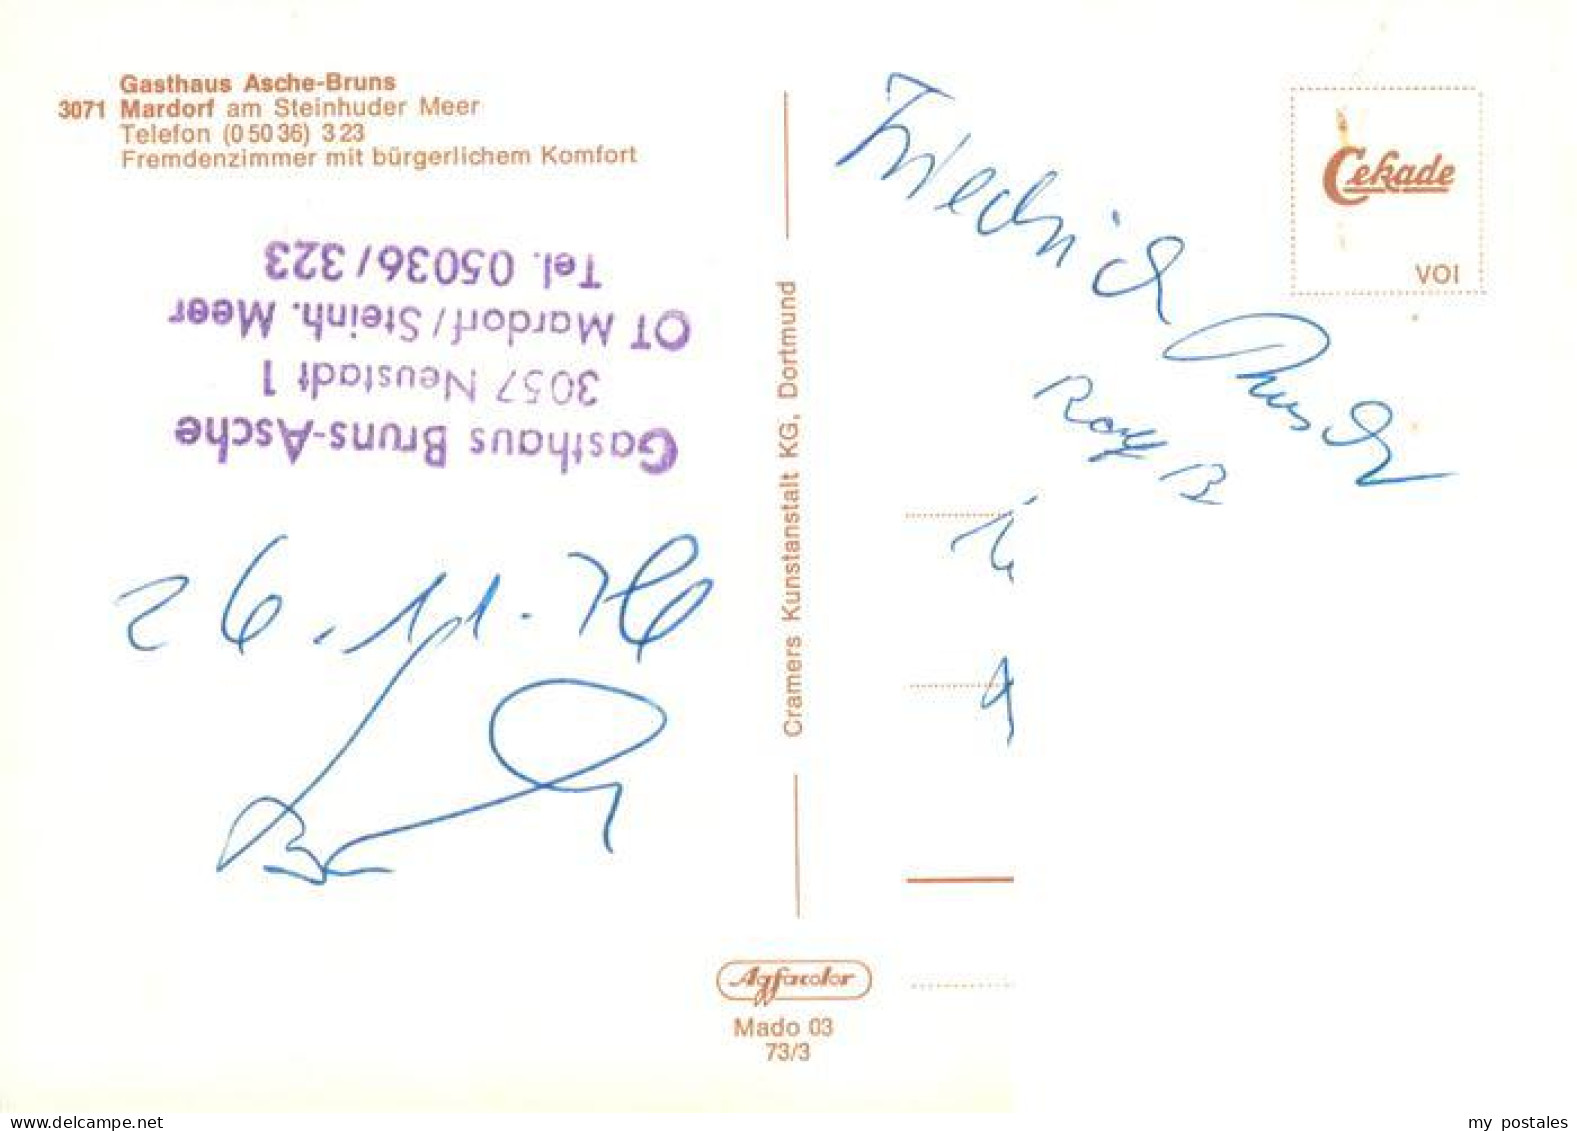 Gasthaus Asche-Bruns
3071 Mardorf am Steinhuder Meer
Telefon (0 50 36) 3 23
Fremdenzimmer mit bürgerlichem Komfort
Gasthaus Bruns-Asche
3057 Neustadt 1
OT Mardorf/Steinh. Meer
Tel. 05036/323
26.11.76
Cramers Kunstanstalt KG, Dortmund
Friedrich
Rolf B
Cekade
VOI
Agfacolor
Mado 03
73/3
my postales
delcampe.net